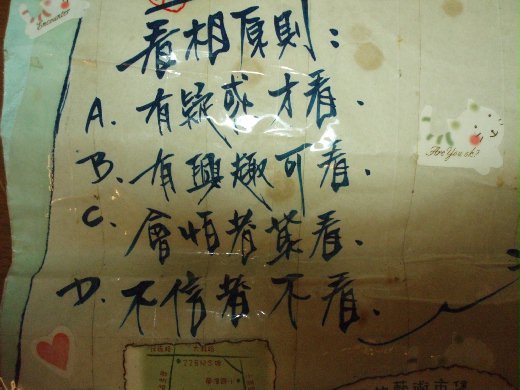 Encounter
看相原則:
A. 有疑或才看.
B. 有興趣可看.
Are You ok?
C. 會怕者莫看.
D. 不信者不看.